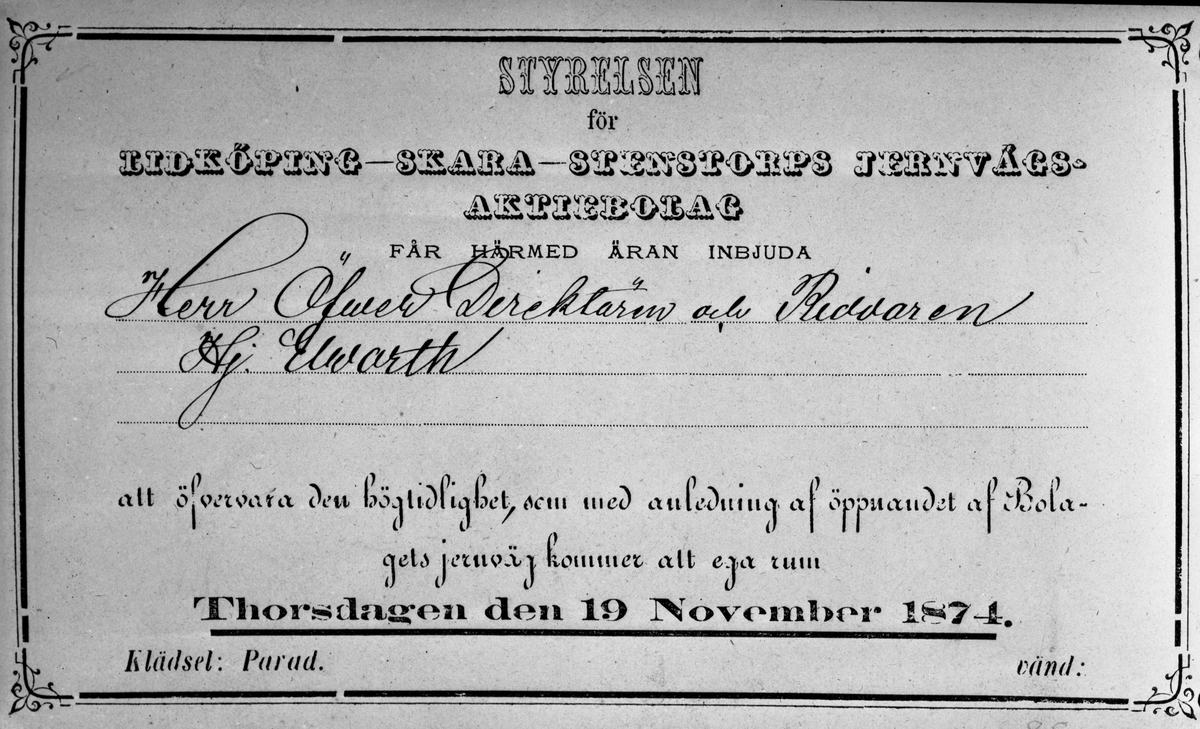 STYRELSEN
för
LIDKÖPING—SKARA—STENSTORPS JERNVÄGS-
AKTIEBOLAG
FÅR HÄRMED ÄRAN INBJUDA
Herr Öfwer Direktören och Riddaren
Hj. Elworth
att öfvervara den högtidlighet, som med anledning af öppnandet af Bola-
gets jernväg kommer att ega rum
Thorsdagen den 19 November 1874.
Klädsel: Parad. vänd: